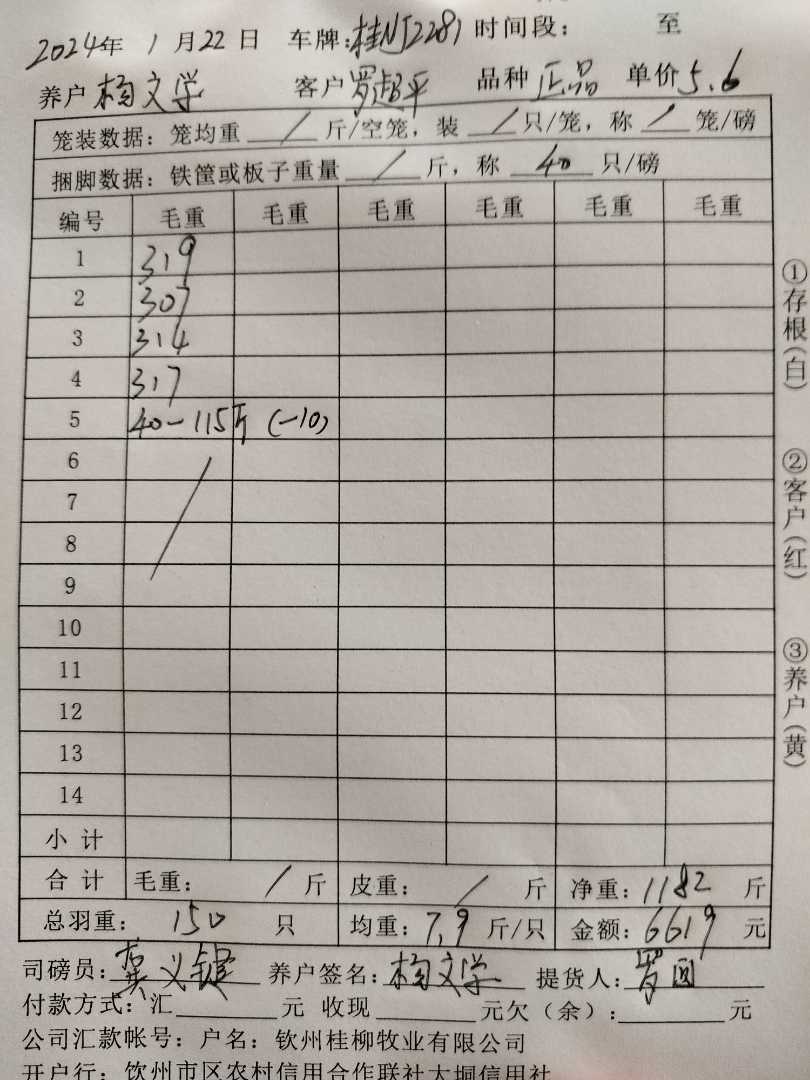 2024年 1月22日 车牌:桂NJ2281 时间段: 至
养户 杨文学 客户 罗超平 品种 正品 单价 5.6
笼装数据: 笼均重 / 斤/空笼, 装 / 只/笼, 称 / 笼/磅
捆脚数据: 铁筐或板子重量 / 斤, 称 40 只/磅
编号 毛重 毛重 毛重 毛重 毛重 毛重
1 319
2 307
3 314
4 317
5 40-115斤 (-10)
6
7
8
9
10
11
12
13
14
小计
合计 毛重: / 斤 皮重: / 斤 净重: 1182 斤
总羽重: 150 只 均重: 7.9 斤/只 金额: 6619 元
司磅员: 龚义键 养户签名: 杨文学 提货人: 罗圆
付款方式: 汇 元 收现 元欠(余): 元
公司汇款帐号: 户名: 钦州桂柳牧业有限公司
开户行: 钦州市区农村信用合作联社大垌信用社
①存根(白)
②客户(红)
③养户(黄)